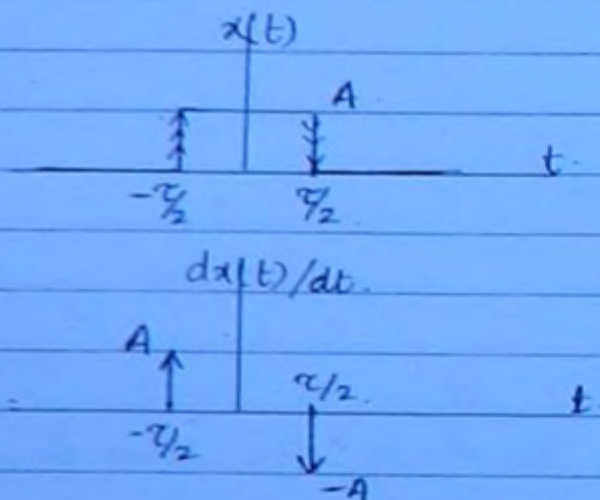 x(t)
A
t
-τ/2
τ/2
dx(t)/dt
A
τ/2
t
-τ/2
-A